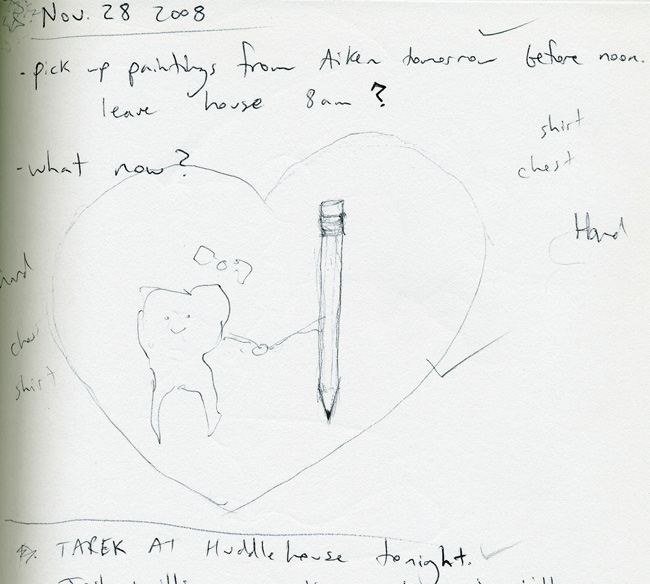 Nov. 28 2008
- pick up paintings from Aiken tomorrow before noon.
leave house 8am?
shirt
chest
- what now?
Hand
shirt
TAREK AT Huddlehouse tonight.